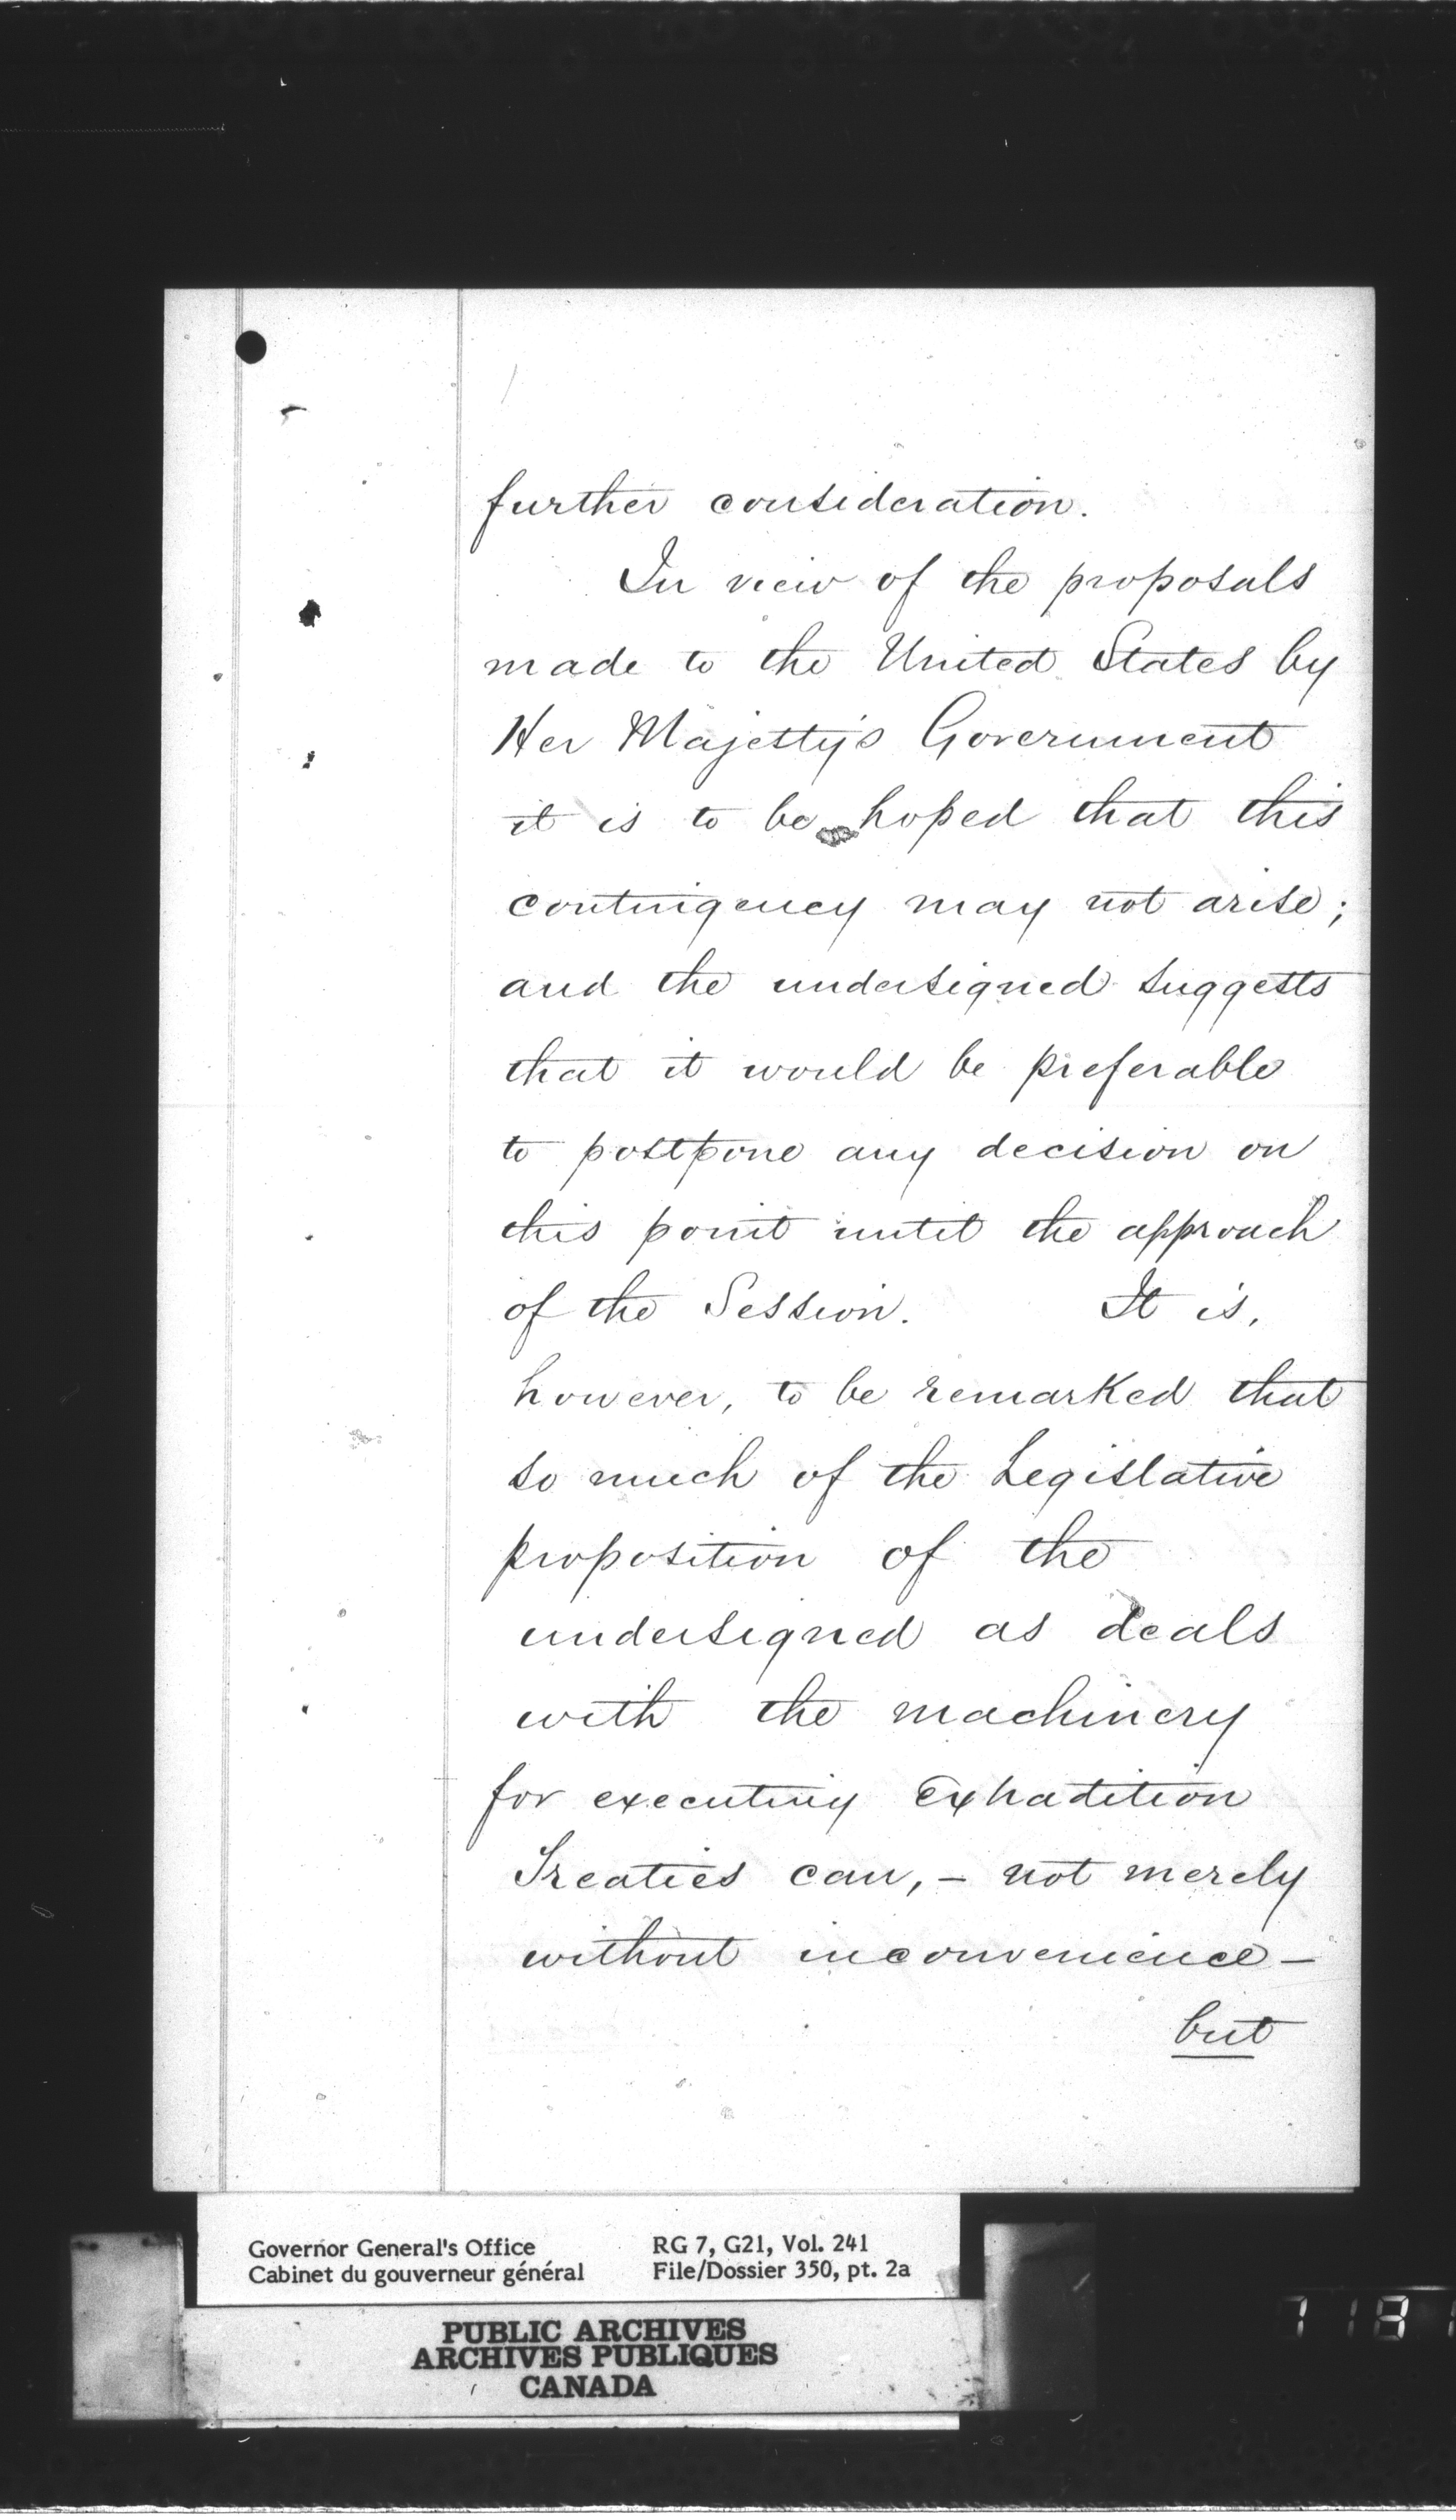 further consideration.
In view of the proposals
made to the United States by
Her Majesty's Government
it is to be hoped that this
contingency may not arise;
and the undersigned suggests
that it would be preferable
to postpone any decision on
this point until the approach
of the Session. It is,
however, to be remarked that
so much of the Legislative
proposition of the
undersigned as deals
with the machinery
for executing Extradition
Treaties can, - not merely
without inconvenience -
but
Governor General's Office
Cabinet du gouverneur général
RG 7, G21, Vol. 241
File/Dossier 350, pt. 2a
PUBLIC ARCHIVES
ARCHIVES PUBLIQUES
CANADA